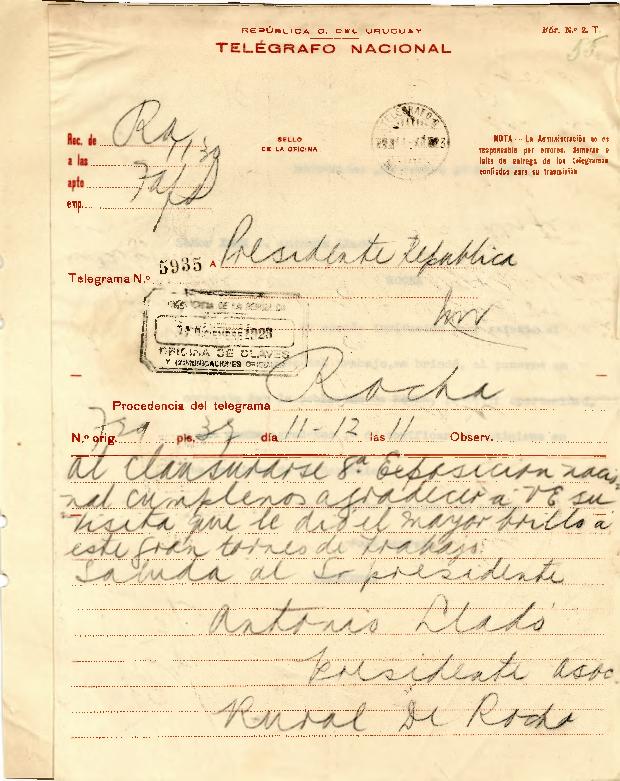 REPÚBLICA O. DEL URUGUAY
TELÉGRAFO NACIONAL
Fór. N.º 2. T.
55
Rec. de Ra
a las 11 30
apto
emp.
SELLO
DE LA OFICINA
NOTA - La Administración no es
responsable por errores, demoras o
falta de entrega de los telegramas
confiados para su trasmisión
Telegrama N.º 5935 A Presidente Republica
OFICINA DE CLAVES
Y COMUNICACIONES
Procedencia del telegrama Rocha
N.º orig. 729 pls. 39 día 11-12 las 11 Observ.
al clausurarse 8ª Exposicion nacio
nal cumplenos agradecer a VE su
visita que le dió el mayor brillo a
este gran torneo de trabajo.
Saluda al Sr presidente
Antonio Lladó
presidente asoc.
Rural De Rocha